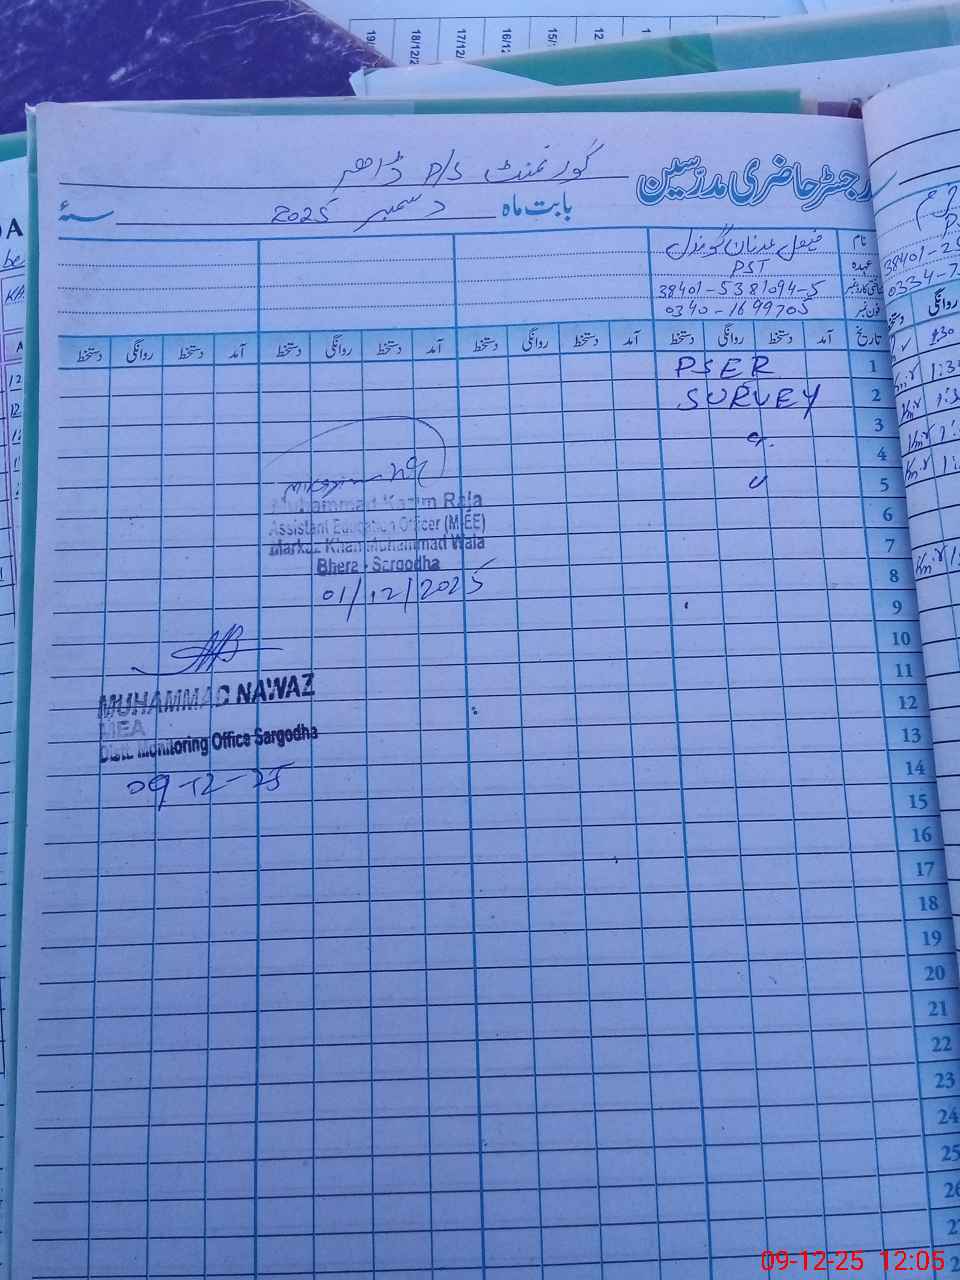 19/
18/12/2
17/12/
16/12
15/
12
1
گورنمنٹ P/S ڈاھر
رجسٹر حاضری مدرسین
بابت ماہ دسمبر 2025 سنہ
نام فیصل عدنان گوندل
عہدہ PST
شناختی کارڈ نمبر 38401-5381094-5
فون نمبر 0340-1699705
تاریخ آمد دستخط روانگی دستخط آمد دستخط روانگی دستخط آمد دستخط روانگی دستخط آمد دستخط روانگی دستخط
1 PSER
2 SURVEY
3
4
5
6
7
8
9
10
11
12
13
14
15
16
17
18
19
20
21
22
23
24
25
26
Muhammad Kazim Raja
Assistant Education Officer (M-EE)
Markaz Khan Muhammad Wala
Bhera - Sargodha
01/12/2025
MUHAMMAD NAWAZ
MEA
Distt. Monitoring Office Sargodha
09-12-25
38401-2
0334-7
روانگی
1:30
09-12-25 12:05